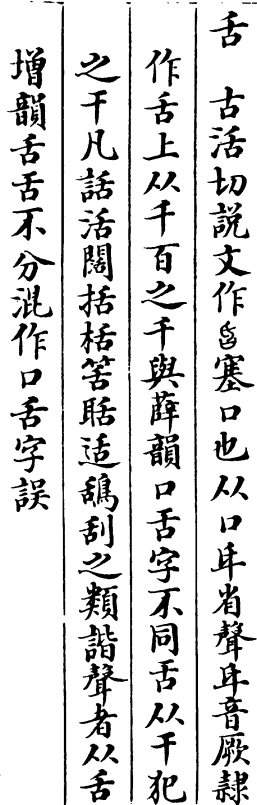 舌　古活切説文作𠯑塞口也从口氒省聲氒音厥隸
作舌上从千百之千與薛韻口舌字不同舌从干犯
之干凡話活闊括栝筈聒适鴰刮之類諧聲者从舌
增韻舌舌不分混作口舌字誤